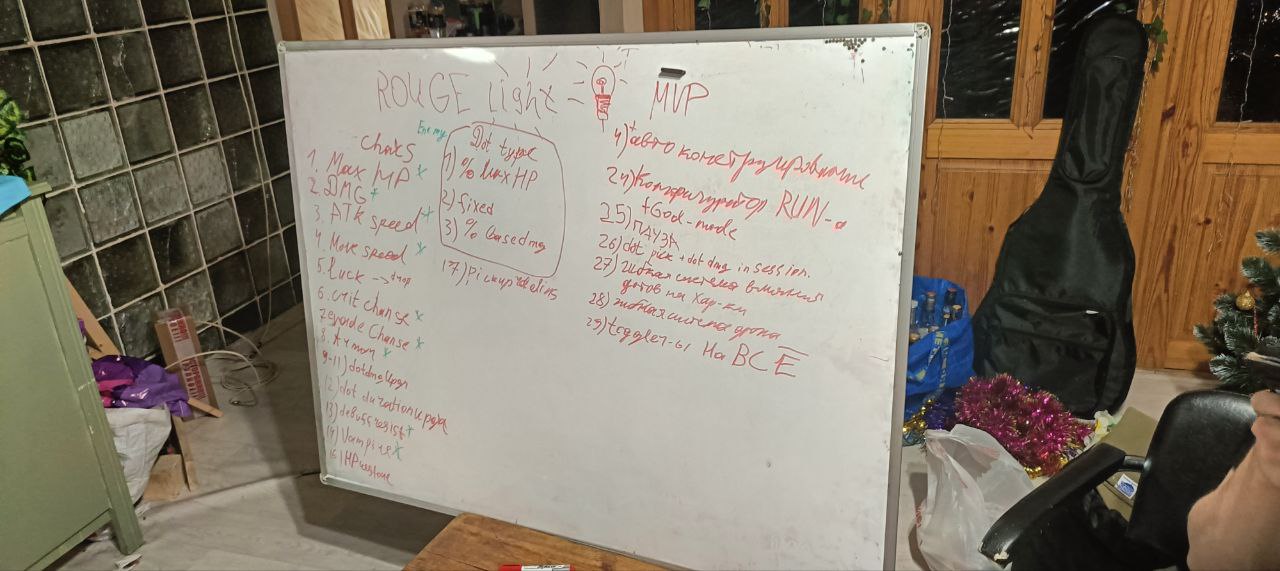 ROUGE Light
MVP
chaks
1. Max MP *
2. DMG *
3. ATK speed *
4. Move speed *
5. Luck -> drop
6. crit chanse *
7 evade Chanse *
8. Armor *
9-11) dot dmg
12) dot duration
13) debuff resist *
14) Vampire *
16) HP restore
Enemy
Dot type
1) % Max HP
2) fixed
3) %
17) Pickup
4) + авто конструирование
24) Конфигуратор RUN-а
+ God-mode
25) ПАУЗА
26) dot pick + dot dmg in session.
27) гибкая система влияния
дотов на хар-ки
28) гибкая система дропа
29) toggler-ы на ВСЕ